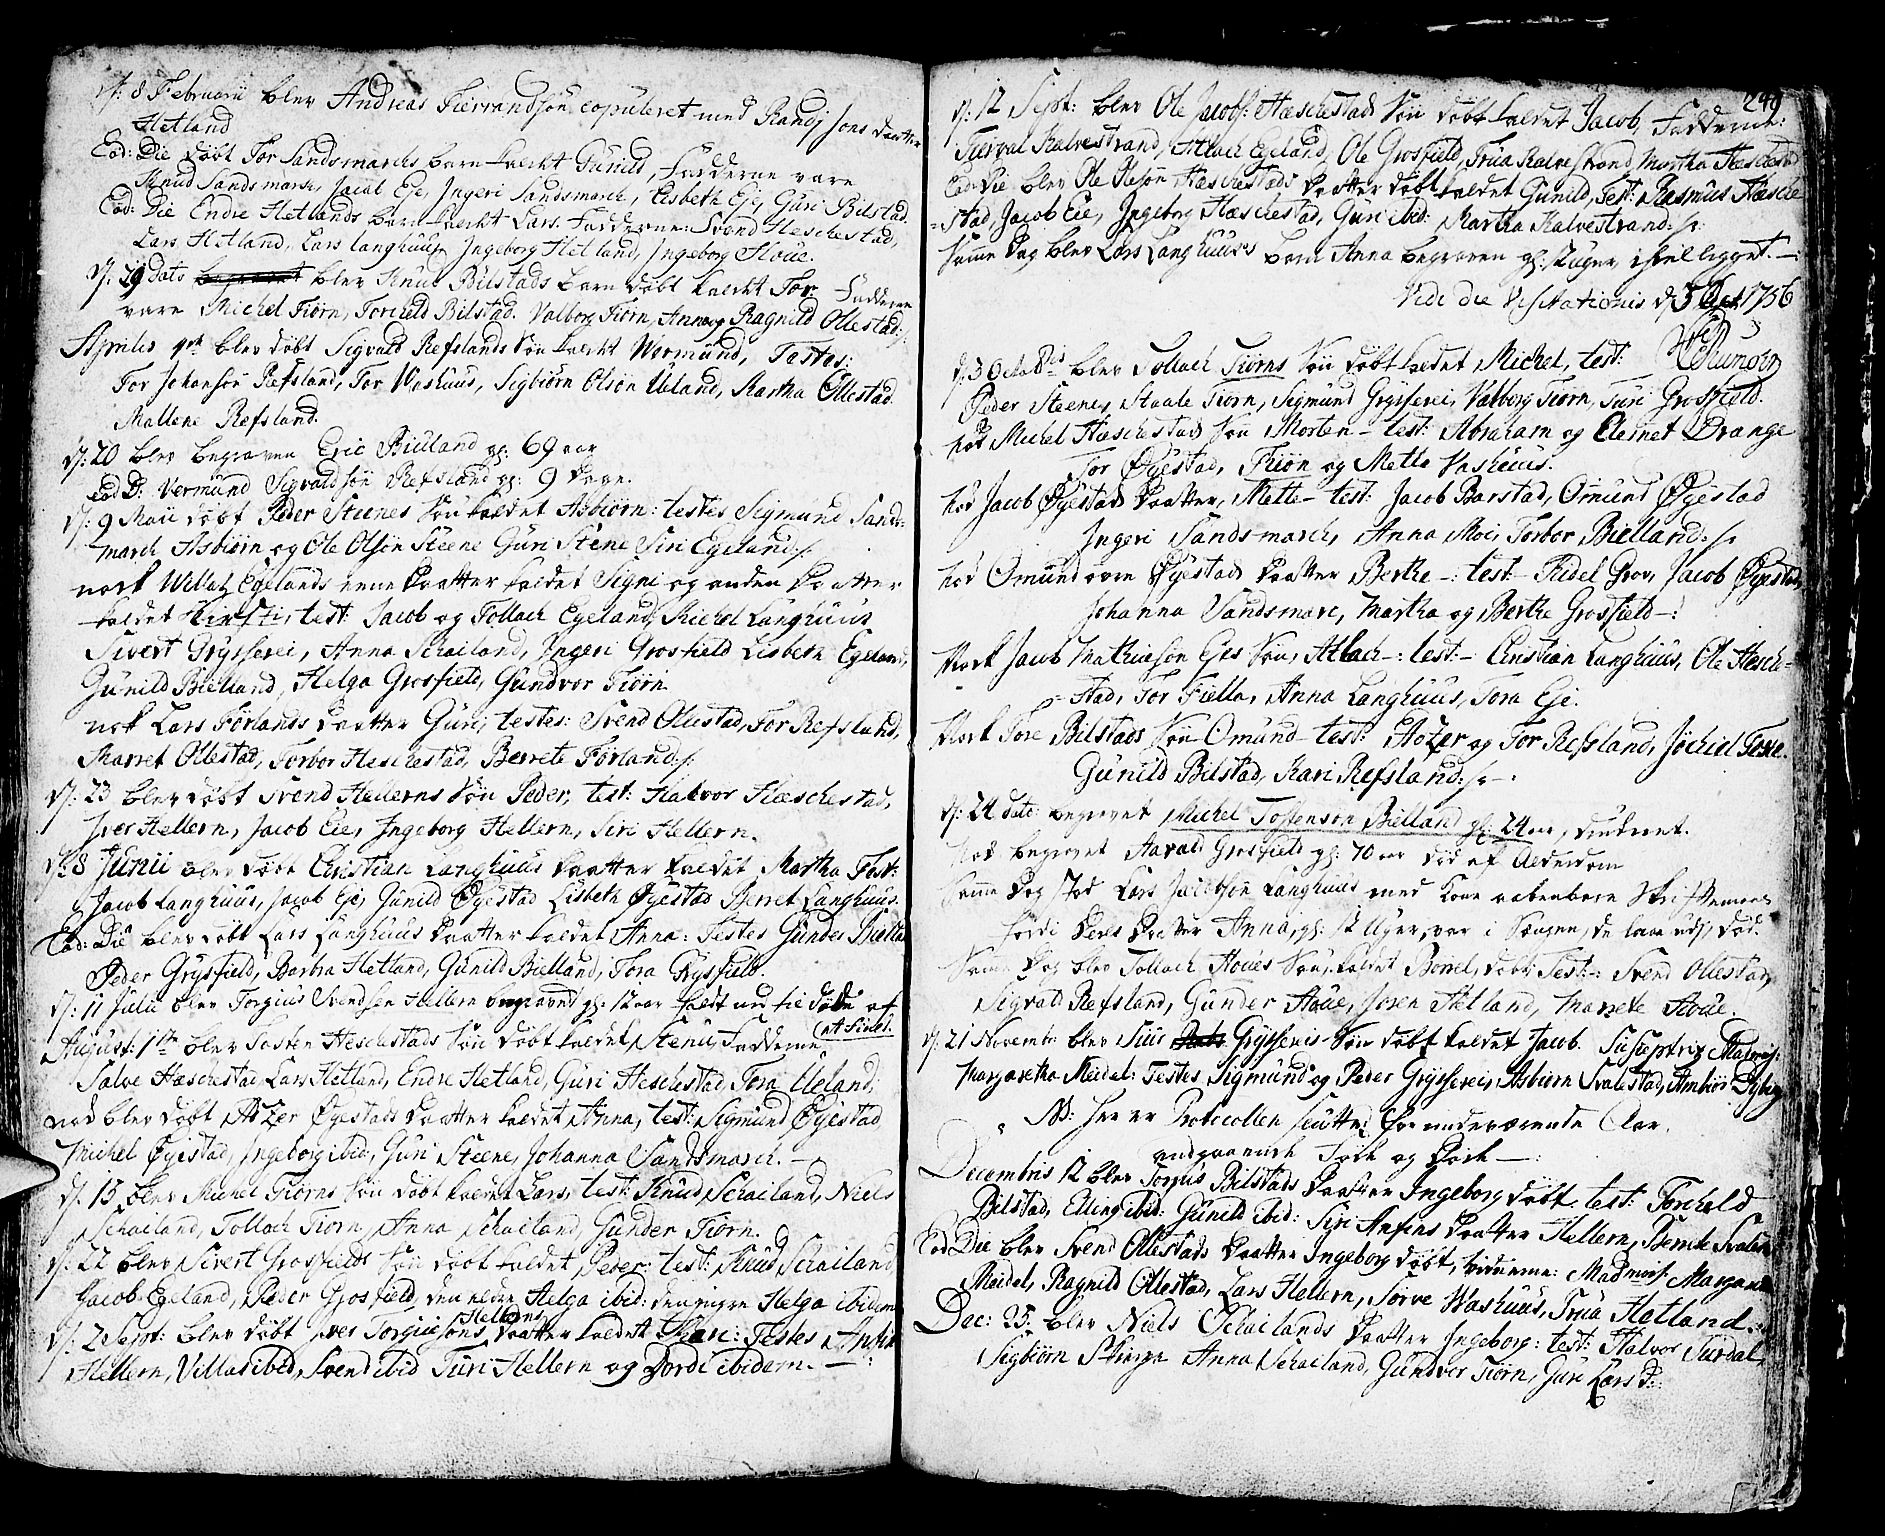 d: 8 Februarii blev Andreas Tierrandsøn copuleret med Randj Jons daatter
Hetland
Eod: Die døbt Tor Sandsmarchs barn kaldt Gunild, Fadderne vare
Knud Sandsmarch, Jacob Eje, Ingeri Sandsmarch, Lisbeth Eje, Guri Bilstad.
Eod: Die Endre Hetlands barn kaldt Lars. Fadderne: Svend Heschestad,
Lars Hetland, Lars Langhuus, Ingeborg Hetland, Ingeborg Houe.
d: 29 dato blev Knud Bilstads barn døbt kaldt Tor. Fadderne
vare Michel Tiørn, Torchild Bilstad. Valborg Tiørn, Anna og Ragnild Ollestad:
Aprilis blev døbt Sigvald Refslands Søn kaldt Vermund, Testes:
Tor Johansøn Refsland, Tor Washuus, Sigbiørn Olsøn Ueland, Martha Ollestad.
Mallene Refsland.
d: 20 blev begraven Eric Bielland gl: 69 aar
Eod D: Vermund Sigvaldsøn Refsland gl: 9 Dage.
d: 9 Maii døbt Peder Steenes Søn kaldet Asbiørn: testes Sigmund Sands-
march Asbiørn og Ole Olsøn Steene Guri Stene Siri Egeland:/:
nock Willatz Egelands eene Daatter kaldet Signi og anden Daatter
kaldet Kirsti, test: Jacob og Tollach Egeland, Michel Langhuus
Sivert Gryfserei, Anna Schailand, Ingeri Grosfield Lisbeth Egeland,
Gunild Bielland, Helga Grosfield, Gundvor Tiørn.
nok Lars Førlands Daatter Guri, testes: Svend Ollestad, Tor Refsland,
Marret Ollestad, Torbor Heschestad, Berrete Førland:/:
d: 23 blev døbt Svend Hellerns Søn Peder, test: Halvor Hæschestad,
Iver Hellern, Jacob Eie, Ingeborg Hellern, Siri Hellern.
d: 8 Junii blev døbt Christian Langhuus Daatter kaldet Martha Test:
Jacob Langhuus, Jacob Eje, Gunild Øyestad Lisbeth Øyestad Berret Langhuus.
Eod: Die blev døbt Lars Langhuus Daatter kaldet Anna: Testes Gunder Bielland
Peder Grysfield, Barbra Hetland, Gunild Bielland, Tora Grysfield.
d: 11 Julii blev Torgius Svendsen Hellern begraved gl: 12 aar faldt ned til døde af
et Field.
August: 1ste blev Tosten Heschestads Søn døbt kaldet Stenu, Fadderne
Salve Hæschestad Lars Hetland, Endre Hetland, Guri Heschestad Tora Ueland;
nod blev døbt Atzer Øyestads Daatter kaldet Anna, test: Sigmund Øyestad,
Michel Øyestad, Ingeborg ibid, Guri Steene, Johanna Sandsmarch. —
d: 15 blev Michel Tiørns Søn døbt kaldet Lars, test: Knud Schailand, Niels
Schailand, Tollach Tiørn, Anna Schailand, Gunder Tiørn.
d: 22 blev Sivert Grosfields Søn døbt kaldet Peder: test: Knud Schailand,
Jacob Egeland, Peder Grosfield, den eldre Helga ibid: den yngre Helga ibidem
Hellerns
d: 2 Sept: blev døbt Iver Torgiusøns Daatter kaldet Kari: Testes Anfin
Hellern, Villas ibid, Svend ibid Turi Hellern og Dordi ibidem. —
249
d: 12 Sept: blev Ole Jacobs: Hæschestads Søn døbt kaldet Jacob, Fadderne:
Torval Kalvestrand, Atlach Egeland, Ole Grosfield, Trua Kalvestrand, Martha Hæschestad
Eod: Die blev Ole Olesøn Hæschestads Daatter døbt kaldet Gunild, Test: Rasmus Hæsche
=stad, Jacob Eie, Ingeborg Hæschestad, Guri ibid: Martha Kalvestrand:/:
Samme Dag blev Lars Langhuus's barn Anna begraven gl: 12 uger, ihiel ligget. —
Vidi die Visitationis d: 3 Oct 1756
d: 3 Octobris blev Tollach Tiørns Søn døbt kaldet Michel, test:
Peder Steene, Staale Tiørn, Sigmund Gryfserei, Valborg Tiørn, Turi Grosfield.
nok Michel Hæschestads Søn Morten — test: Abraham og Elernet Drange
Tor Øyestad, Tiøn og Mette Vashuus.
nok Jacob Øyestads Daatter, Mette — test: Jacob Barstad, Omund Øyestad
Ingeri Sandsmarch, Anna Moi, Torbor Bielland:/:
nok Omund oven Øyestads Daatter Berthe —: test: — Fidel Grov, Jacob Øyestad,
Johanna Sandsmarc, Martha og Berthe Grosfield —:
Nock Jacob Mathiesøn Ejes Søn, Atlach —: test: — Christian Langhuus, Ole Hesch=
=stad, Tor Fiella, Anna Langhuus, Tora Eje.
Nock Tore Bilstads Søn Omund — test: Atzer og Tor Refsland, Jøchiel Tosse.
Gunild Bilstad, Kari Refsland:/: —
d: 24 dato begravet Michel Tostenson Bielland gl: 24 aar, druknet.
Nok begravet Aavald Grosfield gl: 70 aar død af Alderdom
Samme Dag stod Lars Jacobsøn Langhuus med Kone aabenbare Skriftemaal
fordi deres Daatter Anna, gl: 12 Uger, var i Sengen, de laae udj, død.
Samme Dag blev Tollach Houes Søn, kaldet Borrel, døbt, Test: Svend Ollestad,
Sigvald Refsland, Gunder Houe, Joren Hetland, Marrete Houe.
d: 21 Novembr blev Siur Gryfsereis Søn døbt kaldet Jacob. Susceptrix Madmois:
Margaretha Meidel: Testes Sigmund og Peder Gryfserei, Asbiørn Svalestad, Ambiør Dybing
NB: her er Protocollen sluttet for nuværende Aar.
angaaende Fødte og Døde —:
Decembris 12 blev Torjus Bilstads Daatter Ingeborg døbt. test: Torchild
Bilstad, Elling ibid: Gunild ibid: Siri Anfins Daatter Hellern, Berthe Svalestad
Eod: Die blev Svend Ollestads Daatter Ingeborg døbt, vidnerne: Madmois: Margareta
Meidel, Ragnild Ollestad, Lars Hellern, Sørve Washuus, Trua Hetland.
Dec: 25 blev Niels Schailands Daatter Ingeborg: test: Halvor Surdal,
Sigbiørn Anna Schailand, Gundver Tiørn, Guri Lars D: